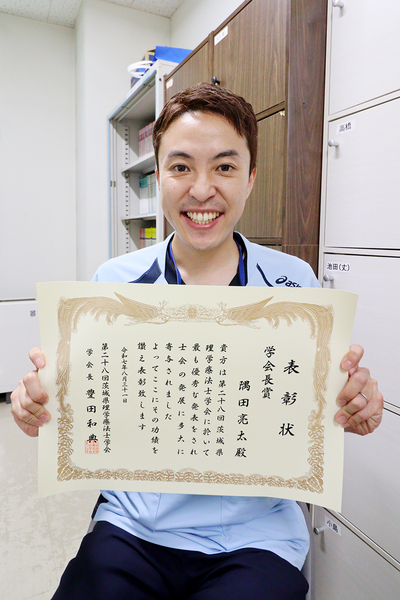 表彰状
学会長賞
隅田亮太 殿
貴方は第二十八回茨城県
理学療法士学会に於いて
最も優秀な発表をされ
士会の発展に多大に
寄与されました
よってここにその功績を
讃え表彰致します
令和七年八月三十一日
第二十八回茨城県理学療法士学会
学会長 豊田和典
asics
高橋
池田(丈)
小島